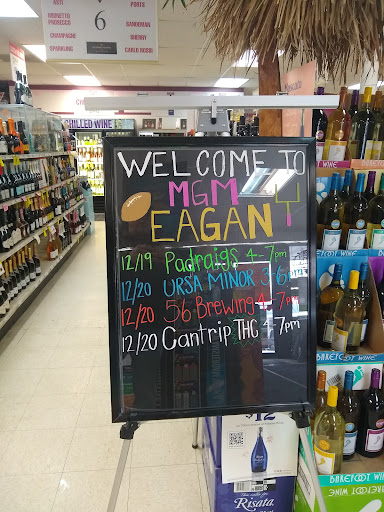 ASTI
PORTS
MOSCATO
PROSECCO
SANDEMAN
CHAMPAGNE
SHERRY
SPARKLING
CARLO ROSSI
6
CHILLED WINE
WELCOME TO
MGM
EAGAN
12/19 Padraigs 4-7pm
12/20 URSA MINOR 3-6pm
12/20 56 Brewing 4-7pm
12/20 Cantrip THC 4-7pm
$12
Risata
BAREFOOT WINE
BAREFOOT WINE